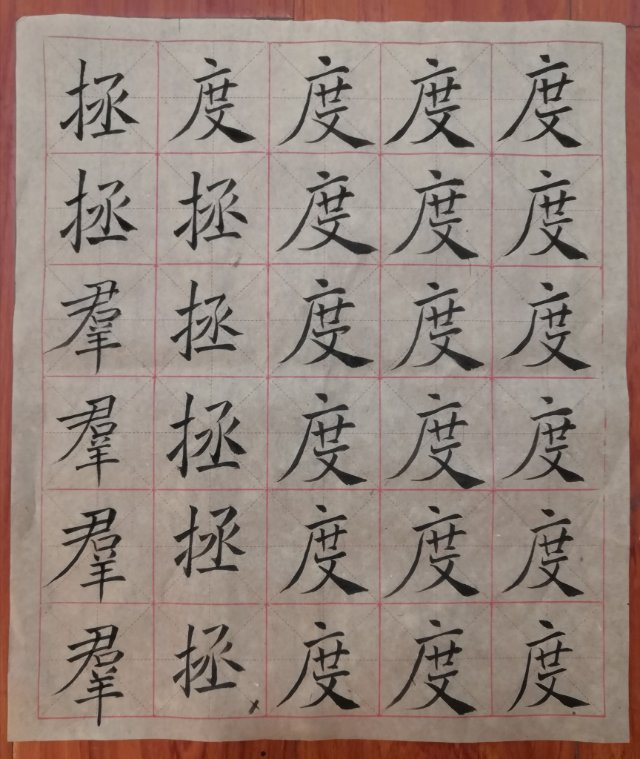 度度度度度度
度度度度度度
度度度度度度
度拯拯拯拯拯
拯拯羣羣羣羣